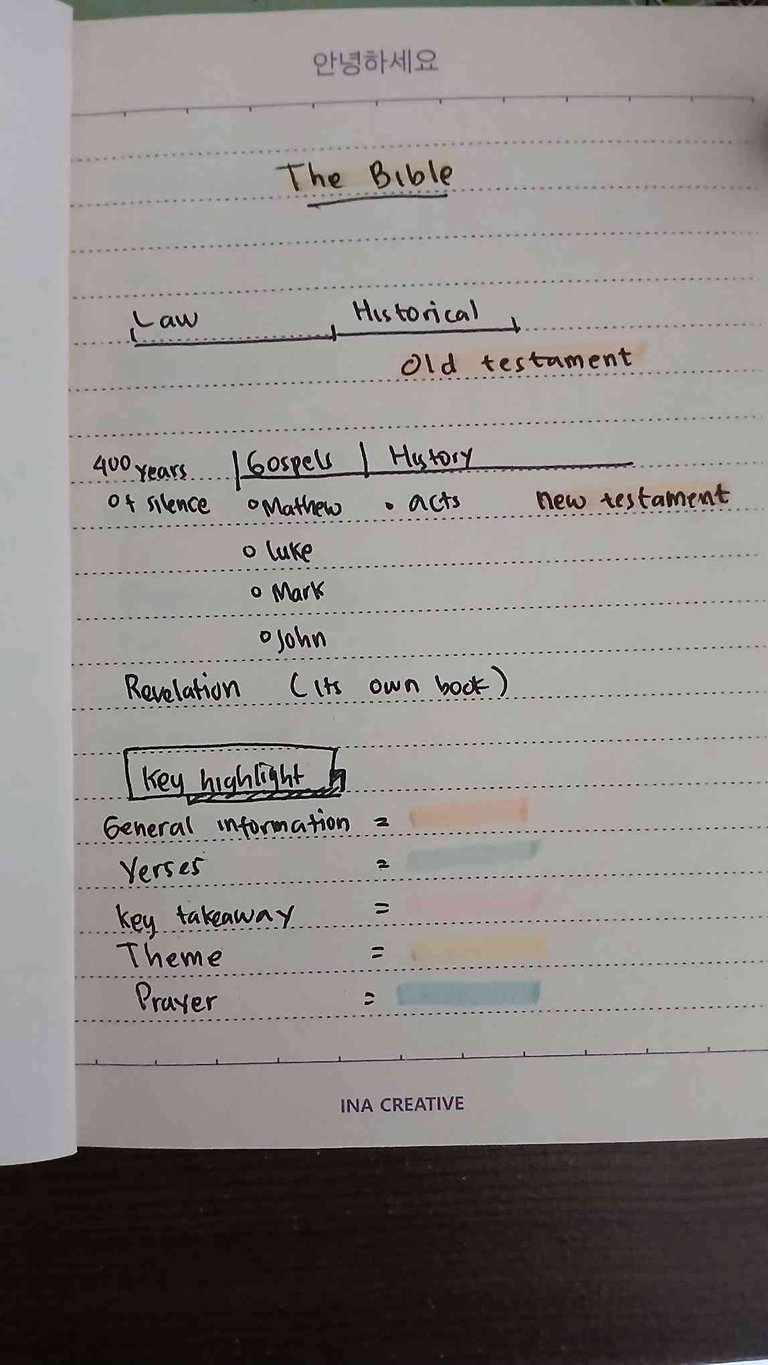 안녕하세요
The Bible
Law Historical
Old testament
400 years Gospels History
of silence Mathew acts new testament
Luke
Mark
John
Revelation (Its own book)
Key highlight
General information =
Verses =
key takeaway =
Theme =
Prayer =
INA CREATIVE